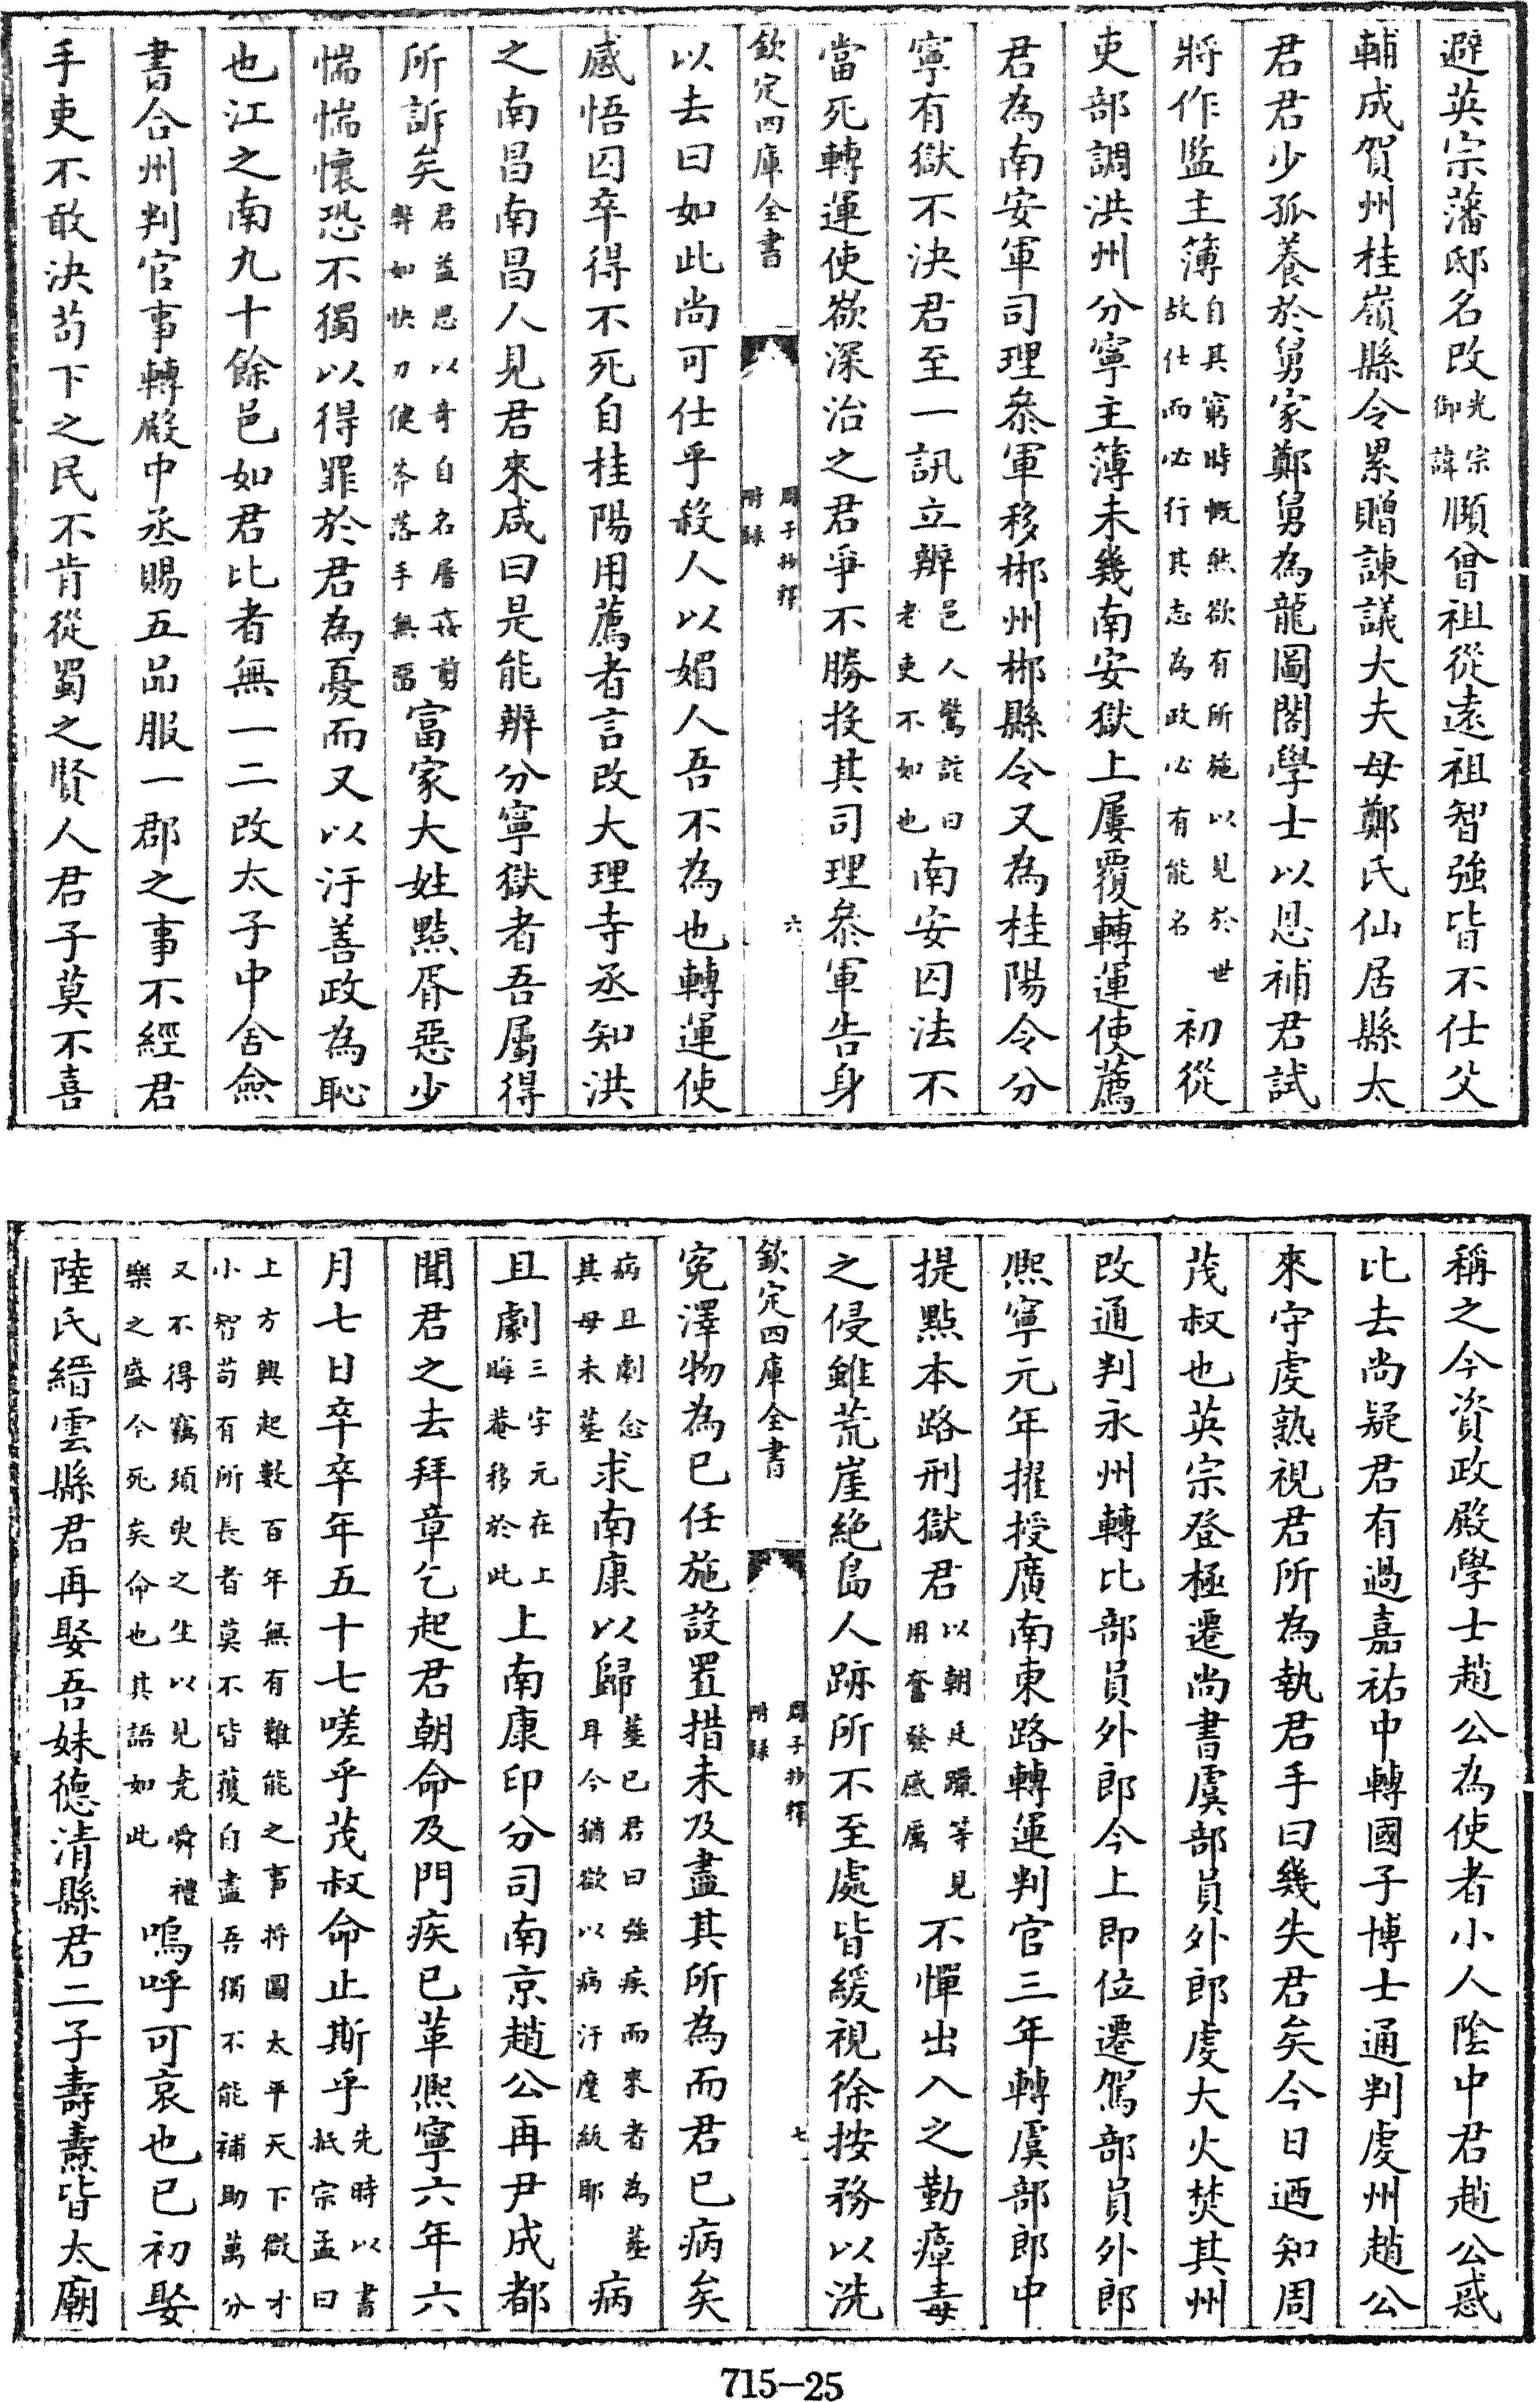 避英宗藩邸名改光宗御諱顒曾祖從遠祖智強皆不仕父
輔成賀州桂嶺縣令累贈諫議大夫母鄭氏仙居縣太
君君少孤養於舅家鄭舅為龍圖閣學士以恩補君試
將作監主簿自其窮時慨然欲有所施以見於世故仕而必行其志為政必有能名初從
吏部調洪州分寧主簿未幾南安獄上屢覆轉運使薦
君為南安軍司理叅軍移郴州郴縣令又為桂陽令分
寧有獄不決君至一訊立辨邑人驚詫曰老吏不如也南安囚法不
當死轉運使欲深治之君爭不勝投其司理叅軍告身
欽定四庫全書 周子抄釋附錄 六
以去曰如此尚可仕乎殺人以媚人吾不為也轉運使
感悟囚卒得不死自桂陽用薦者言改大理寺丞知洪
之南昌南昌人見君來咸曰是能辨分寧獄者吾屬得
所訴矣君益思以奇自名屠姦剪弊如快刀健斧落手無留富家大姓黠胥惡少
惴惴懷恐不獨以得罪於君為憂而又以汙善政為恥
也江之南九十餘邑如君比者無一二改太子中舍僉
書合州判官事轉殿中丞賜五品服一郡之事不經君
手吏不敢決苟下之民不肯從蜀之賢人君子莫不喜
稱之今資政殿學士趙公為使者小人陰中君趙公惑
比去尚疑君有過嘉祐中轉國子博士通判虔州趙公
來守虔熟視君所為執君手曰幾失君矣今日迺知周
茂叔也英宗登極遷尚書虞部員外郎虔大火焚其州
改通判永州轉比部員外郎今上即位遷駕部員外郎
熈寧元年擢授廣南東路轉運判官三年轉虞部郎中
提點本路刑獄君以朝廷躐等見用奮發感厲不憚出入之勤瘴毒
之侵雖荒崖絶島人跡所不至處皆緩視徐按務以洗
欽定四庫全書 周子抄釋附錄 七
寃澤物為已任施設置措未及盡其所為而君已病矣
病且劇念其母未塟求南康以歸塟已君曰強疾而來者為塟耳今猶欲以病汙麾紱耶病
且劇三字元在上晦菴移於此上南康印分司南京趙公再尹成都
聞君之去拜章乞起君朝命及門疾已革熈寧六年六
月七日卒卒年五十七嗟乎茂叔命止斯乎先時以書抵宗孟曰
上方興起數百年無有難能之事將圖太平天下微才小智苟有所長者莫不皆獲自盡吾獨不能補助萬分
又不得竊須臾之生以見堯舜禮樂之盛今死矣命也其語如此嗚呼可哀也已初娶
陸氏縉雲縣君再娶吾妹德清縣君二子壽燾皆太廟
715-25